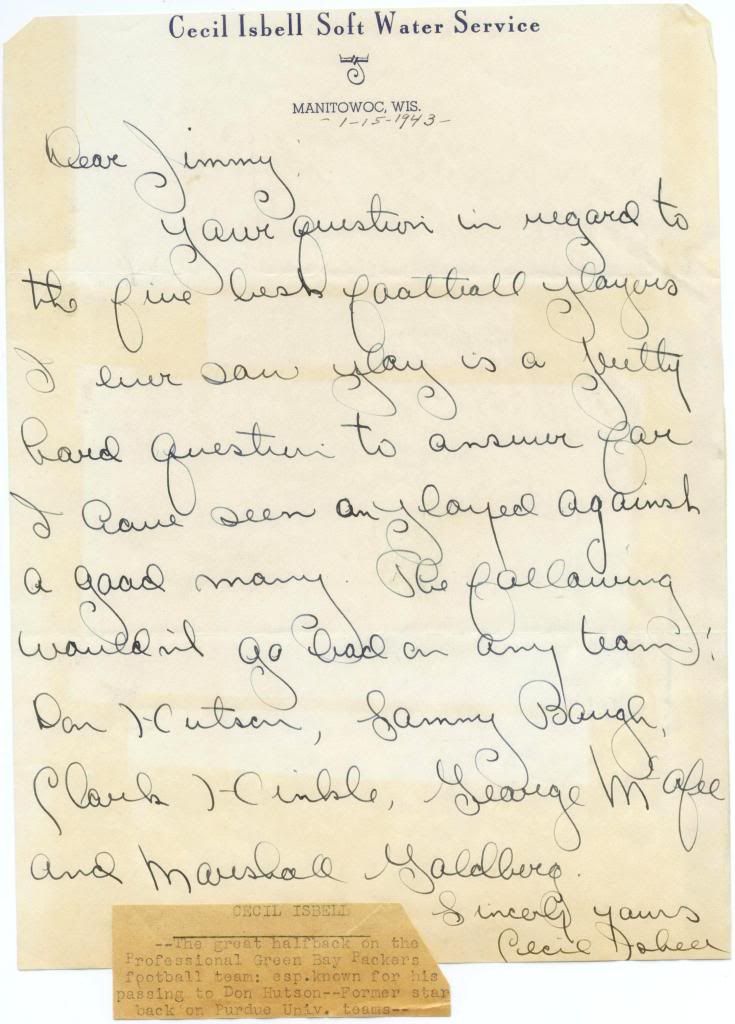 Cecil Isbell Soft Water Service
MANITOWOC, WIS.
- 1-15-1943 -
Dear Jimmy:
Your question in regard to
the five best football players
I ever saw play is a pretty
hard question to answer for
I have seen an played against
a good many. The following
wouldn't go bad on any team:
Don Hutson, Sammy Baugh,
Clark Hinkle, George McAfee
and Marshall Goldberg.
Sincerly yours
Cecil Isbell
CECIL ISBELL
--The great halfback on the
Professional Green Bay Packers
football team; esp.known for his
passing to Don Hutson--Former star
back on Purdue Univ. teams--